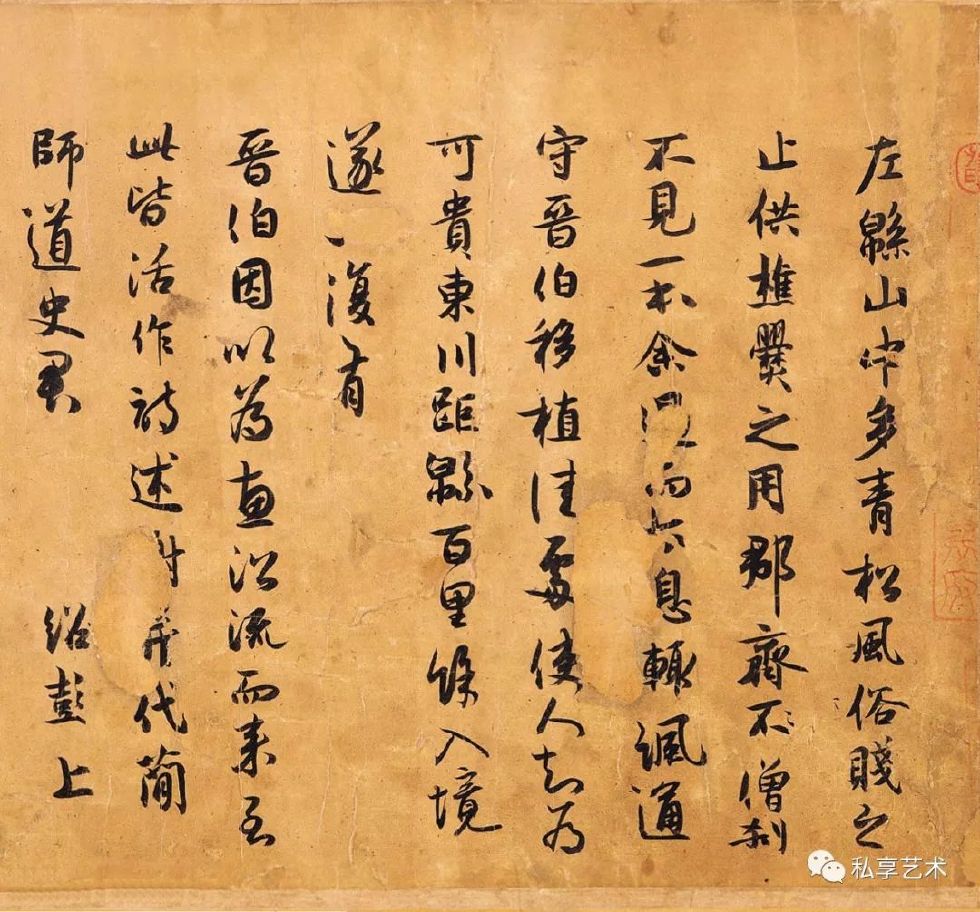 左緜山中多青松風俗賤之
止供樵爨之用郡齋不僧刹
不見一本余而息輒諷通
守晉伯移植佳處使人知為
可貴東川距緜百里餘入境
遂復有
晉伯因以為惠沿流而來至
此皆活作詩述并代簡
師道史君 紹彭上
私享艺术